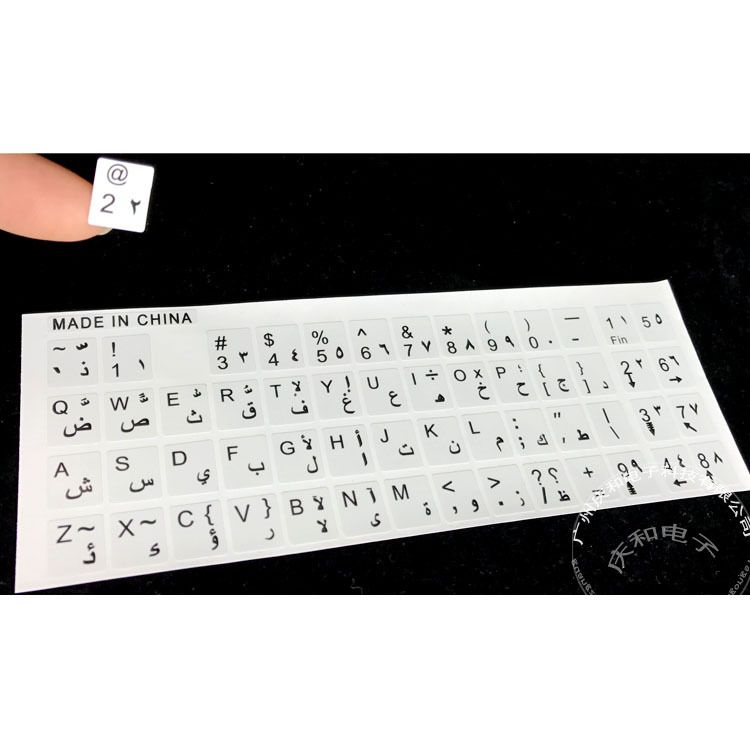 @
2 ٢
MADE IN CHINA
~ ّ ذ
! 1 ١
# 3 ٣
$ 4 ٤
% 5 ٥
^ 6 ٦
& 7 ٧
* 8 ٨
( 9 ٩
) 0 ٠
— -
1 ١ Fin
5 ٥
Q ض
W ص
E ث
R ق
T ف
Y غ
U ع
I ÷ ه
O × خ
P ؛ ح
{ [ ج
} ] د
2 ٢
6 ٦ →
A ش
S س
D ي
F ب
G لأ ل
H أ ا
J ت
K ن
L م
: ; ك
" ' ط
| \
3 ٣
7 ٧ ↖
Z ~ ئ
X ~ ء
C { ؤ
V } ر
B لآ لا
N آ ى
M ة
< , و
> . ز
? ؟ / ظ
+
9 ٩
4 ٤ ←
8 ٨
广州庆和电子科技有限公司
庆和电子